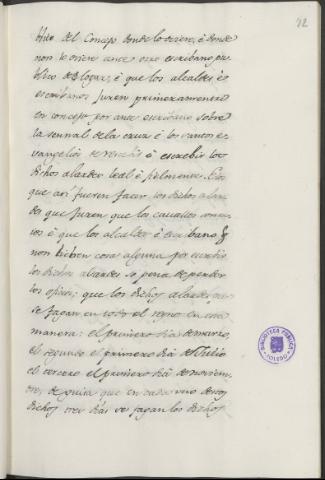 42
blico del Concejo donde lo oviere, é donde
non lo oviere ante otro escribano pu-
blico del logar, é que los alcaldes é
escribanos juren primeramente
en concejo por ante escribano sobre
la sennal de la cruz é los santos e-
vangelios de rescebir é escrebir los
dichos alardes leal é fielmente. E los
que asi fueren facer los dichos alar-
des que juren que los caballos son su-
yos é que los alcaldes é escribanos
non lieben cosa alguna por escrebir
los dichos alardes so pena de perder
los oficios; que los dichos alardes
se fagan en todo el regno en esta
manera: el primero dia de marzo,
el segundo el primero dia de Julio
el tercero el primero dia de noviem-
bre, de guisa que en cada uno destos
dichos tres dias se fagan los dichos
BIBLIOTECA PUBLICA
TOLEDO